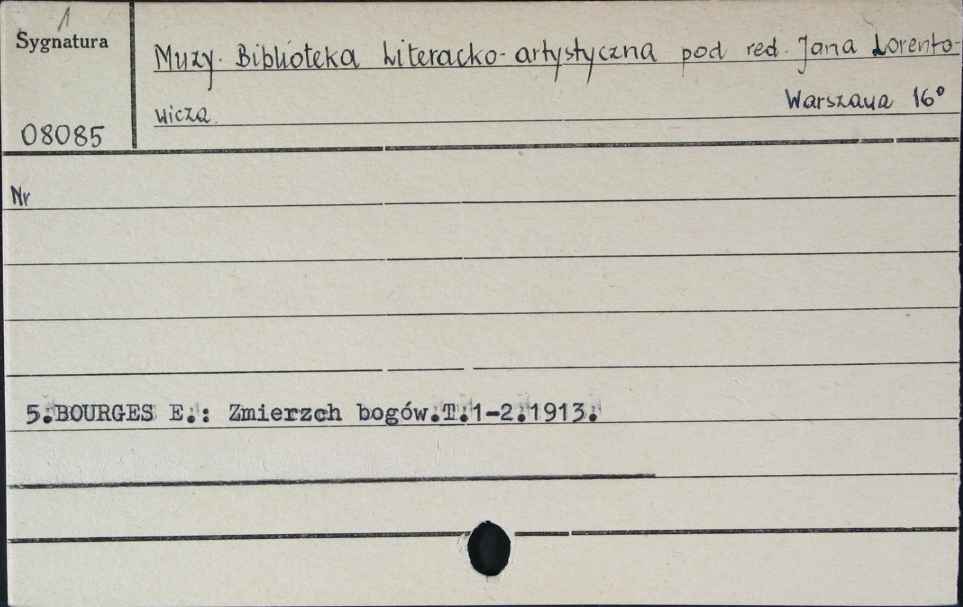 1
Sygnatura
Muzy. Biblioteka Literacko-artystyczna pod red. Jana Lorento-
wicza
Warszawa 16°
08085
Nr
5.BOURGES E.: Zmierzch bogów.T.1-2.1913.